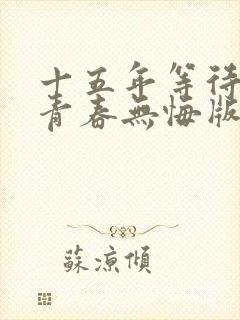 十五年等待
青春無悔版
蘇涼傾